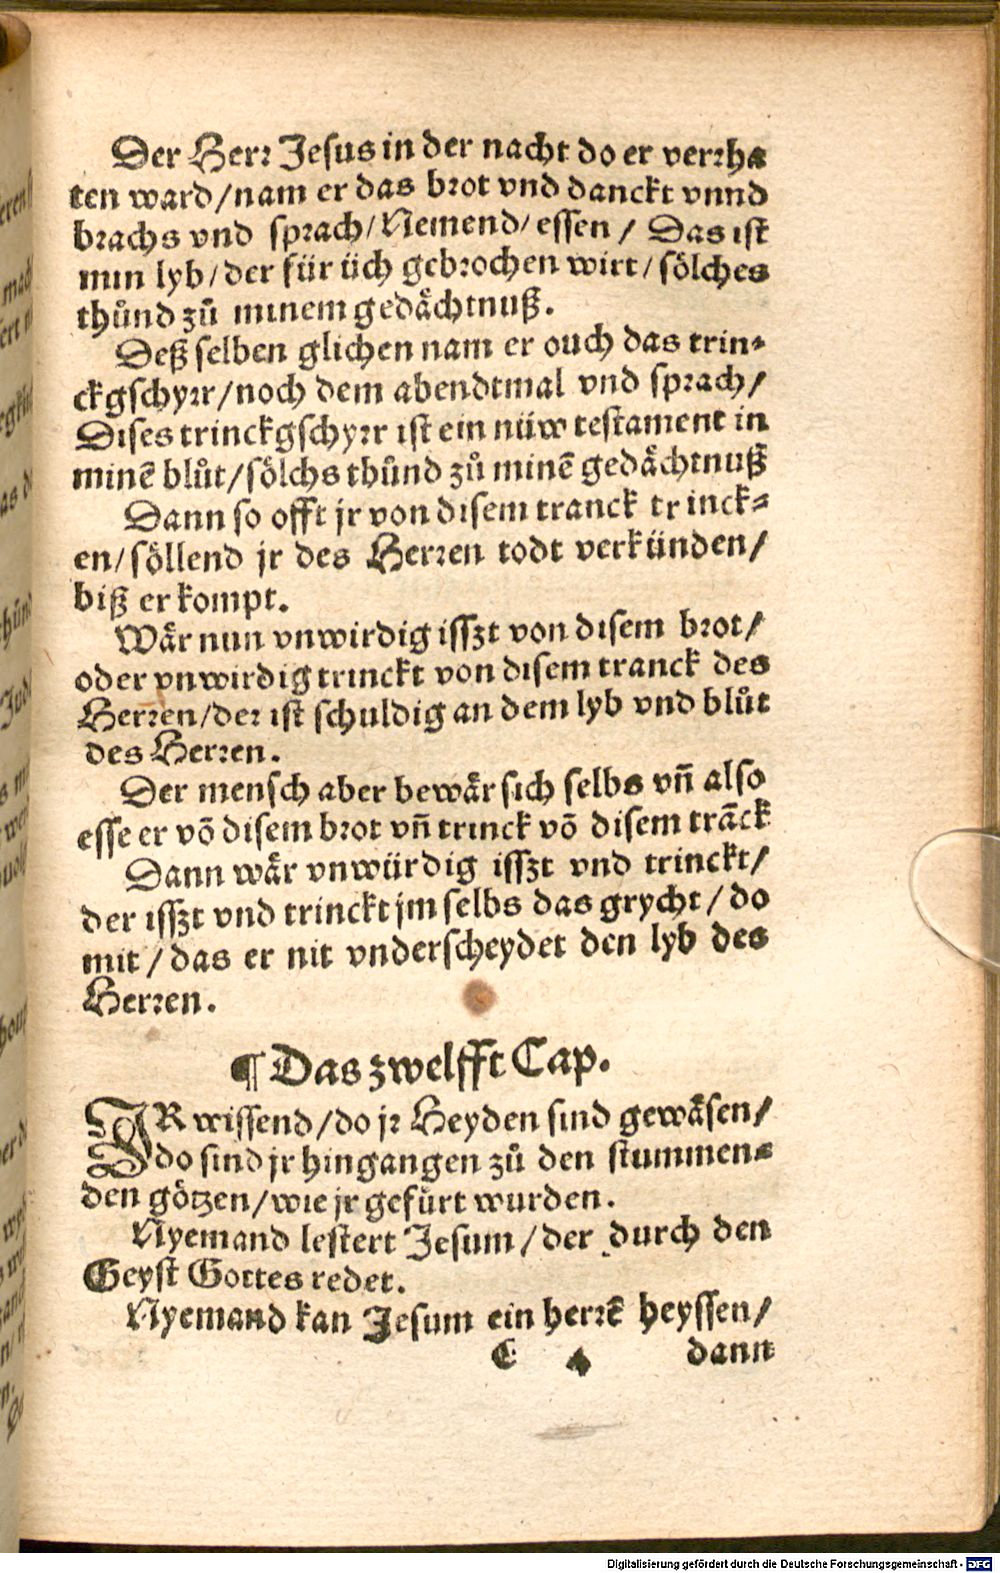 Der Herr Jesus in der nacht do er verrha
ten ward/nam er das brot vnd danckt vnnd
brachs vnd sprach/Nemend/essen/ Das ist
min lyb/der für üch gebrochen wirt/sölches
thůnd zů minem gedächtnuß.
Deß selben glichen nam er ouch das trin⸗
ckgschyrr/noch dem abendtmal vnd sprach/
Dises trinckgschyrr ist ein nüw testament in
minē blůt/sölchs thůnd zů minē gedächtnuß
Dann so offt jr von disem tranck trinck⸗
en/söllend jr des Herren todt verkünden/
biß er kompt.
Wår nun vnwirdig isszt von disem brot/
oder vnwirdig trinckt von disem tranck des
Herren/der ist schuldig an dem lyb vnd blůt
des Herren.
Der mensch aber bewår sich selbs vñ also
esse er vō disem brot vñ trinck vō disem trāck
Dann wår vnwürdig isszt vnd trinckt/
der isszt vnd trinckt jm selbs das grycht/do
mit/das er nit vnderscheydet den lyb des
Herren.
¶ Das zwelfft Cap.
IR wissend/do jr Heyden sind gewåsen/
do sind jr hingangen zů den stummen⸗
den götzen/wie jr gefürt wurden.
Nyemand lestert Jesum/der durch den
Geyst Gottes redet.
Nyemand kan Jesum ein herrē heyssen/
C 4 dann
Digitalisierung gefördert durch die Deutsche Forschungsgemeinschaft - DFG